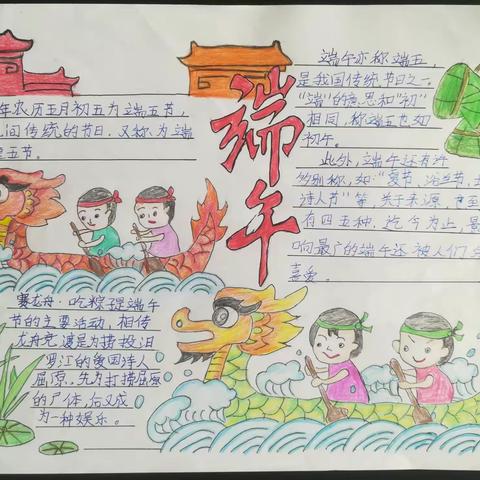 年农历五月初五为端五节,
间传统的节日,又称为端
五节。
端午
端午亦称端五,
是我国传统节日之一,
“端”的意思和“初”
相同,称端五也如
初午。
此外,端午还有许
多别称,如:“夏节、浴兰节、
诗人节”等,关于来源,
有四五种,迄今为止,
响最广的端午还被人们
喜爱。
赛龙舟,吃粽子是端午
节的主要活动,相传
龙舟竞渡是为捞投汨
罗江的爱国诗人
屈原,先为打捞屈原
的尸体,后又成
为一种娱乐。